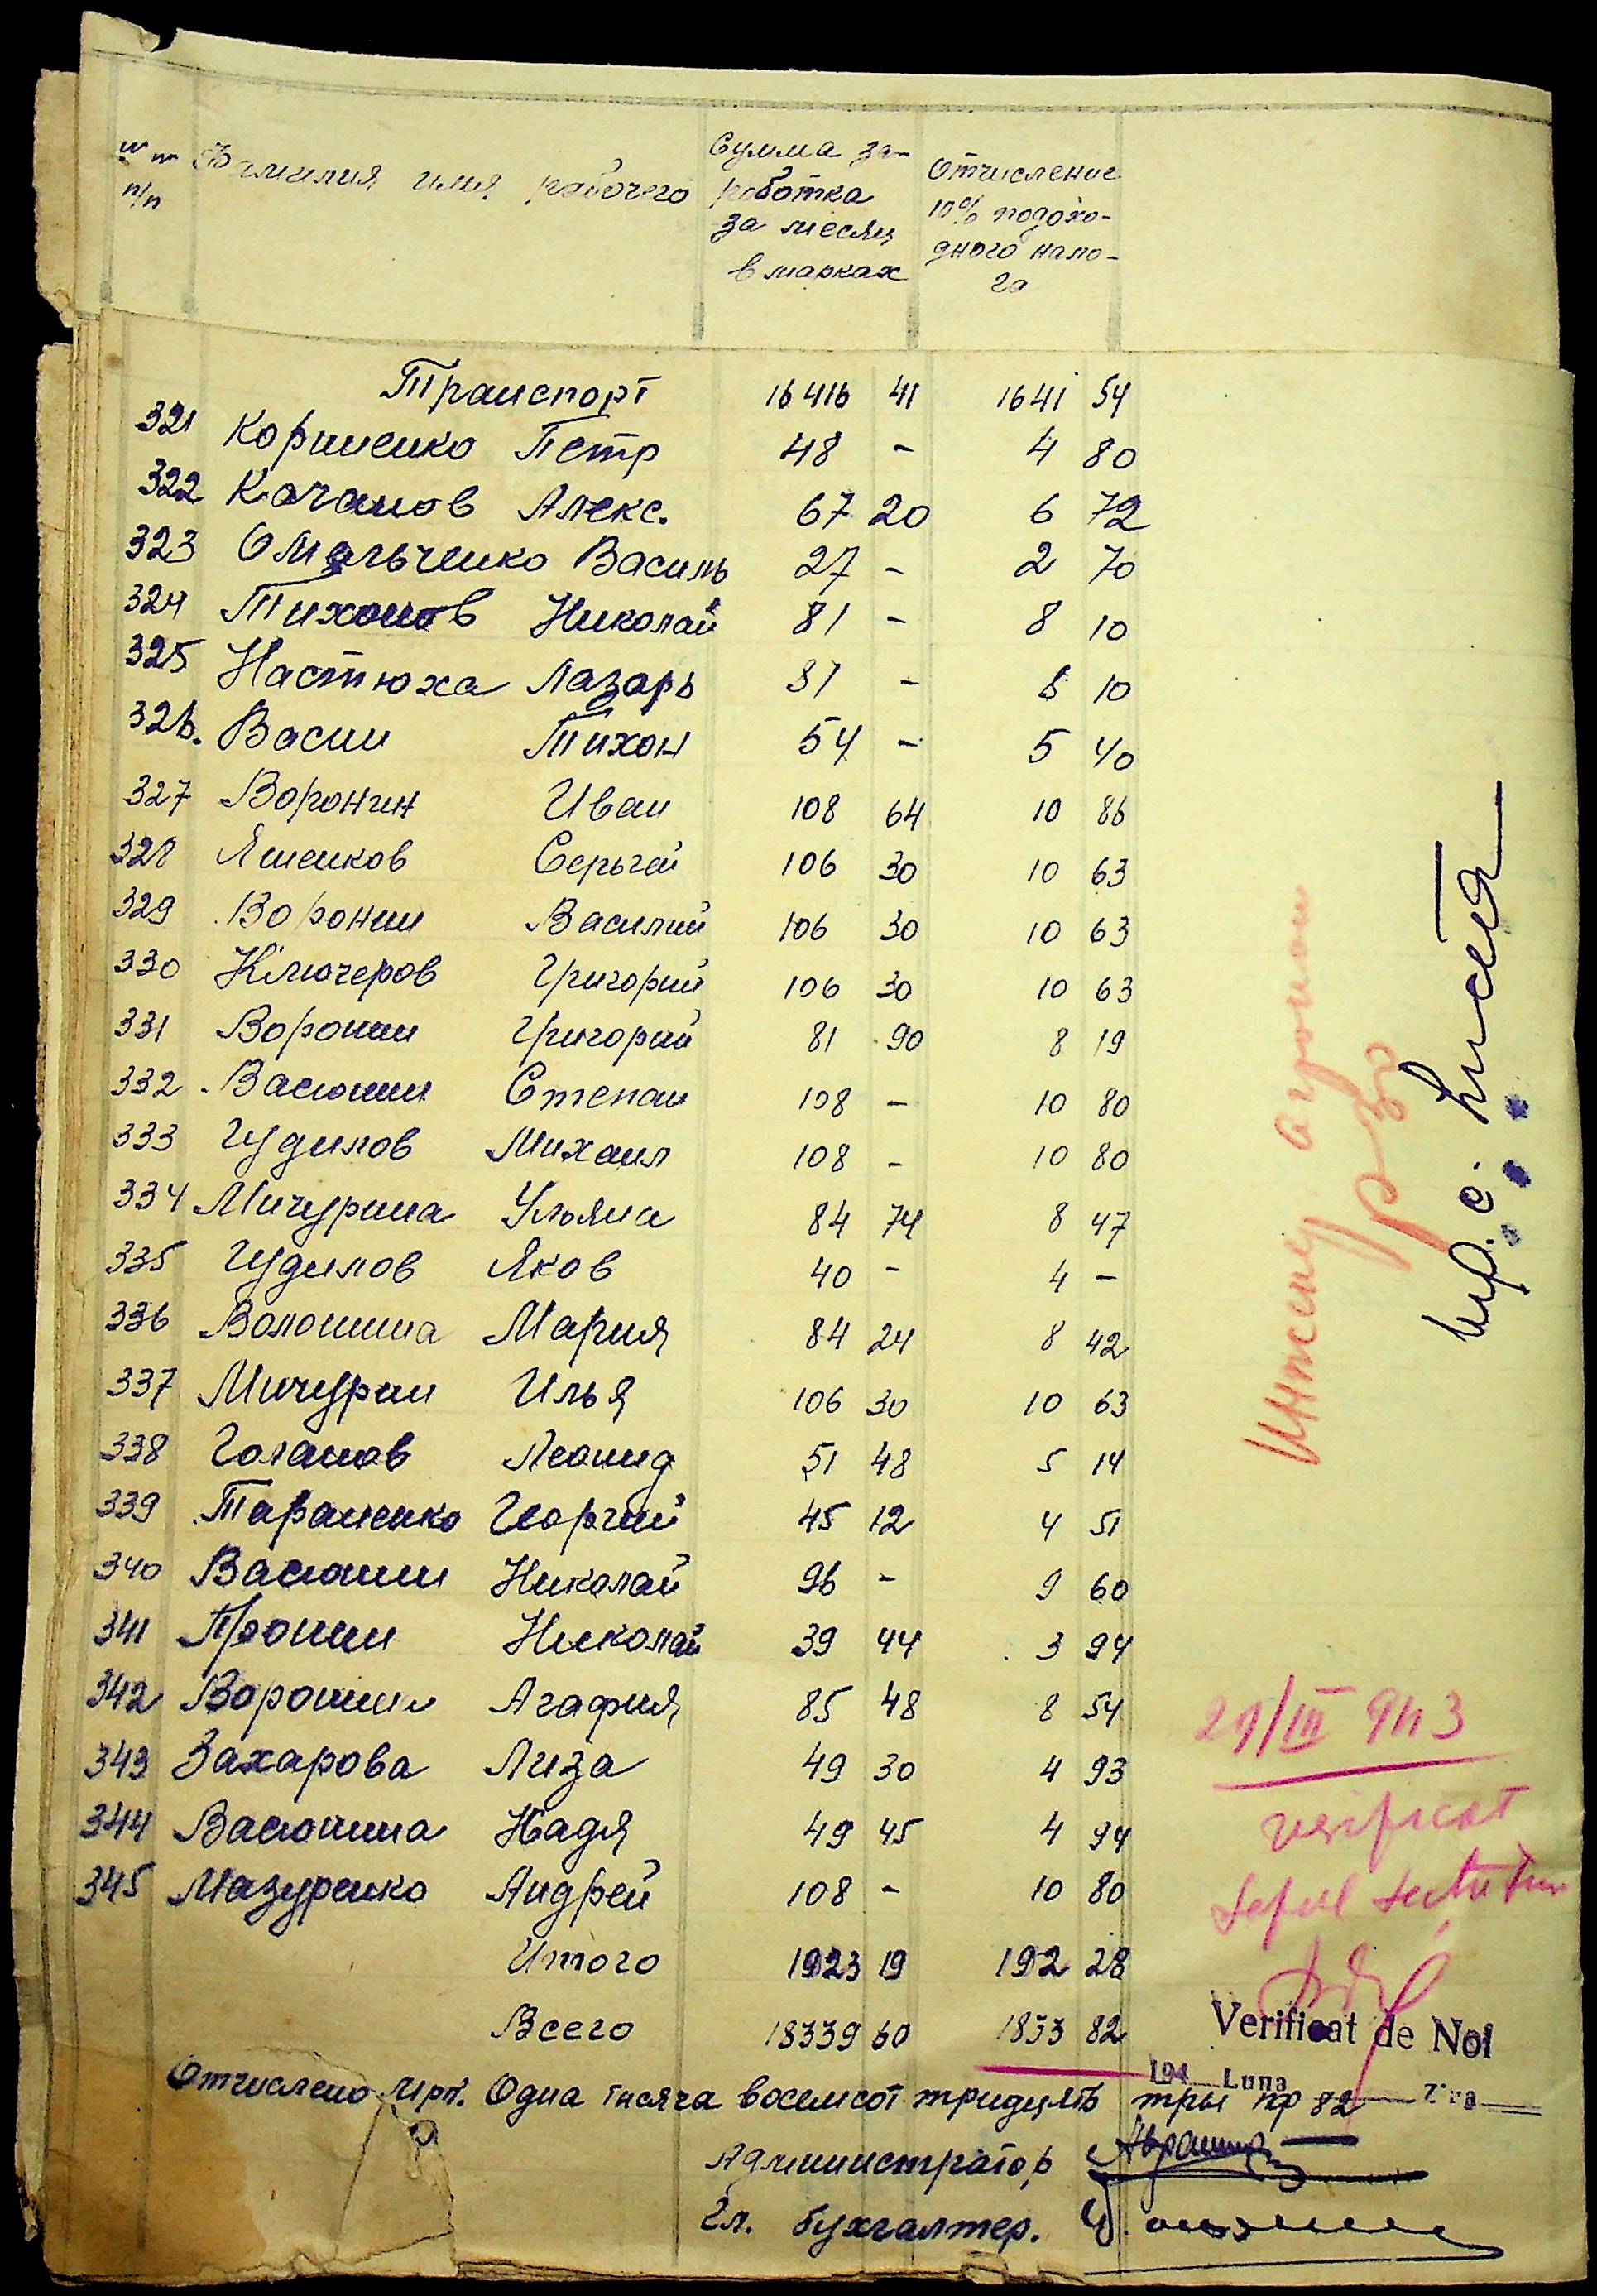 №№ п/п Фамилия имя рабочего Сумма за- Отчисление
работка 10% подохо-
за месяц дного нало-
в марках га
Транспорт 16416 41 1641 54
321 Корниенко Петр 48 - 4 80
322 Качанов Алекс. 67 20 6 72
323 Омельченко Василь 27 - 2 70
324 Тихонов Николай 81 - 8 10
325 Настюха Лазарь 81 - 8 10
326. Васин Тихон 54 - 5 40
327 Воронин Иван 108 64 10 86
328 Яшенков Серьгей 106 30 10 63
329 Воронин Василий 106 30 10 63
330 Ключеров Григорий 106 30 10 63
331 Воронин Григорий 81 90 8 19
332 Васюнин Степан 108 - 10 80
333 Гудилов Михаил 108 - 10 80
334 Мичурина Ульяна 84 74 8 47
335 Гудилов Яков 40 - 4 -
336 Волошина Мария 84 24 8 42
337 Мичурин Илья 106 30 10 63
338 Голанов Леонид 51 48 5 14
339 Тараненко Георгий 45 12 4 51
340 Васюнин Николай 96 - 9 60
341 Пронин Николай 39 44 3 94
342 Воронин Агафия 85 48 8 54
343 Захарова Лиза 49 30 4 93
344 Васюнина Надя 49 45 4 94
345 Мазуренко Андрей 108 - 10 80
Итого 1923 19 192 28
Всего 18339 60 1833 82
Отчислено мрк. Одна тысяча восемсот тридцять тры пф 82
Администратор
Гл. бухгалтер.
29/III 943
verificat
Verificat de Noi
194 Luna Ziua